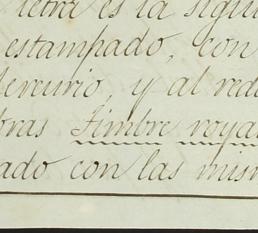 letra es la sigu
estampado, con
ercurio, y al rede
bras Timbre royal
ado con las mism